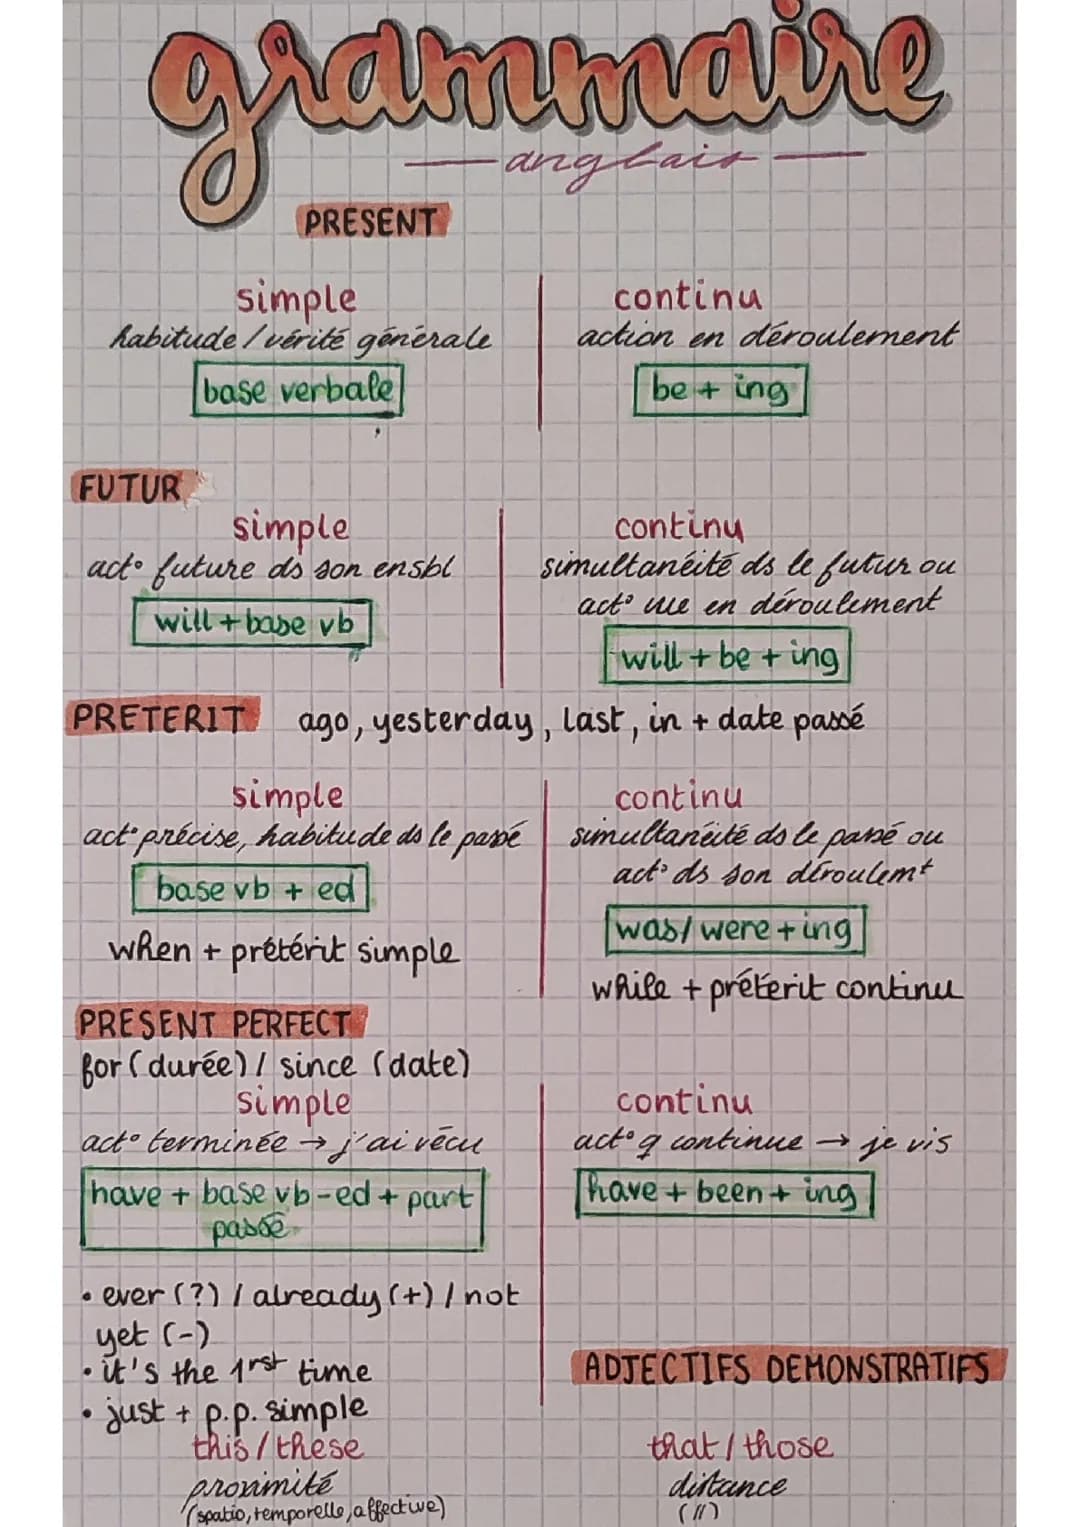 grammaire
anglais
PRESENT
simple
habitude / vérité générale
base verbale
continu
action en déroulement
be + ing
FUTUR
simple
act° future ds son ensbl
will + base vb
continu
simultanéité ds le futur ou
act° vue en déroulement
will + be + ing
PRETERIT ago, yesterday, last, in + date passé
simple
act° précise, habitude ds le passé
base vb + ed
when + prétérit simple
continu
simultanéité ds le passé ou
act° ds son déroulemt
was/ were + ing
while + préterit continu
PRESENT PERFECT
for (durée) / since (date)
simple
act° terminée → j'ai vécu
have + base vb-ed + part
passé
continu
act° q continue → je vis
have + been + ing
• ever (?) / already (+) / not
yet (-)
• it's the 1rst time
• just + p.p. simple
ADJECTIFS DEMONSTRATIFS
this / these
proximité
(spatio, temporelle, affective)
that / those
distance
(//)